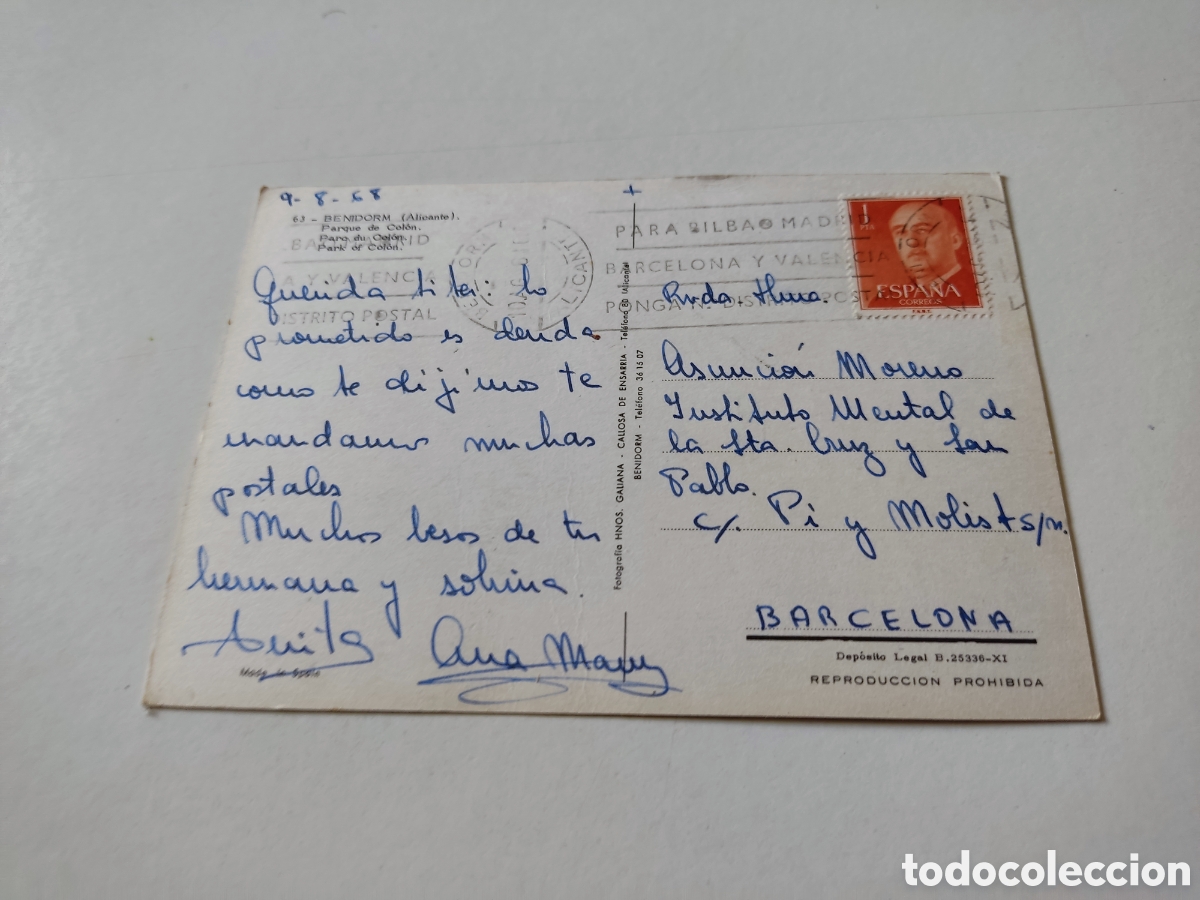 9-8-68
63 - BENIDORM (Alicante).
Parque de Colón.
Parc du Colón.
Park of Colón.
MADRID
A Y VALENCIA
DISTRITO POSTAL
ALICANTE
Querida titer: lo
prometido es deuda
como te dijimos te
mandamos muchas
postales
Muchos besos de tu
hermana y sobrina.
Anita Ana Mary
Made in Spain
Fotografía HNOS. GALIANA - CALLOSA DE ENSARRIA - Teléfono 80 (Alicante)
BENIDORM - Teléfono 36 15 07
+
PARA BILBAO MADRID
BARCELONA Y VALENCIA
PONGA Nº DISTRITO POSTAL
1 PTA
ESPAÑA
CORREOS
Rvda. Hma.
Asunción Moreno
Instituto Mental de
la Sta. Cruz y San
Pablo.
c/. Pi y Molist s/n.
BARCELONA
Depósito Legal B.25336-XI
REPRODUCCION PROHIBIDA
todocoleccion